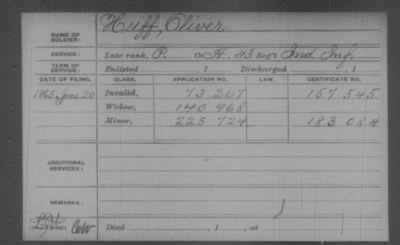 NAME OF SOLDIER: Huff, Oliver
SERVICE: Late rank, P. Co H, 43 Reg't Ind. Inf.
TERM OF SERVICE: Enlisted , 1 , Discharged , 1
DATE OF FILING. CLASS. APPLICATION NO. LAW. CERTIFICATE NO.
1865, June 20 Invalid, 73 267 157 545
Widow, 140 968
Minor, 225 724 183 084
ADDITIONAL SERVICES:
REMARKS:
Died , 1 , at